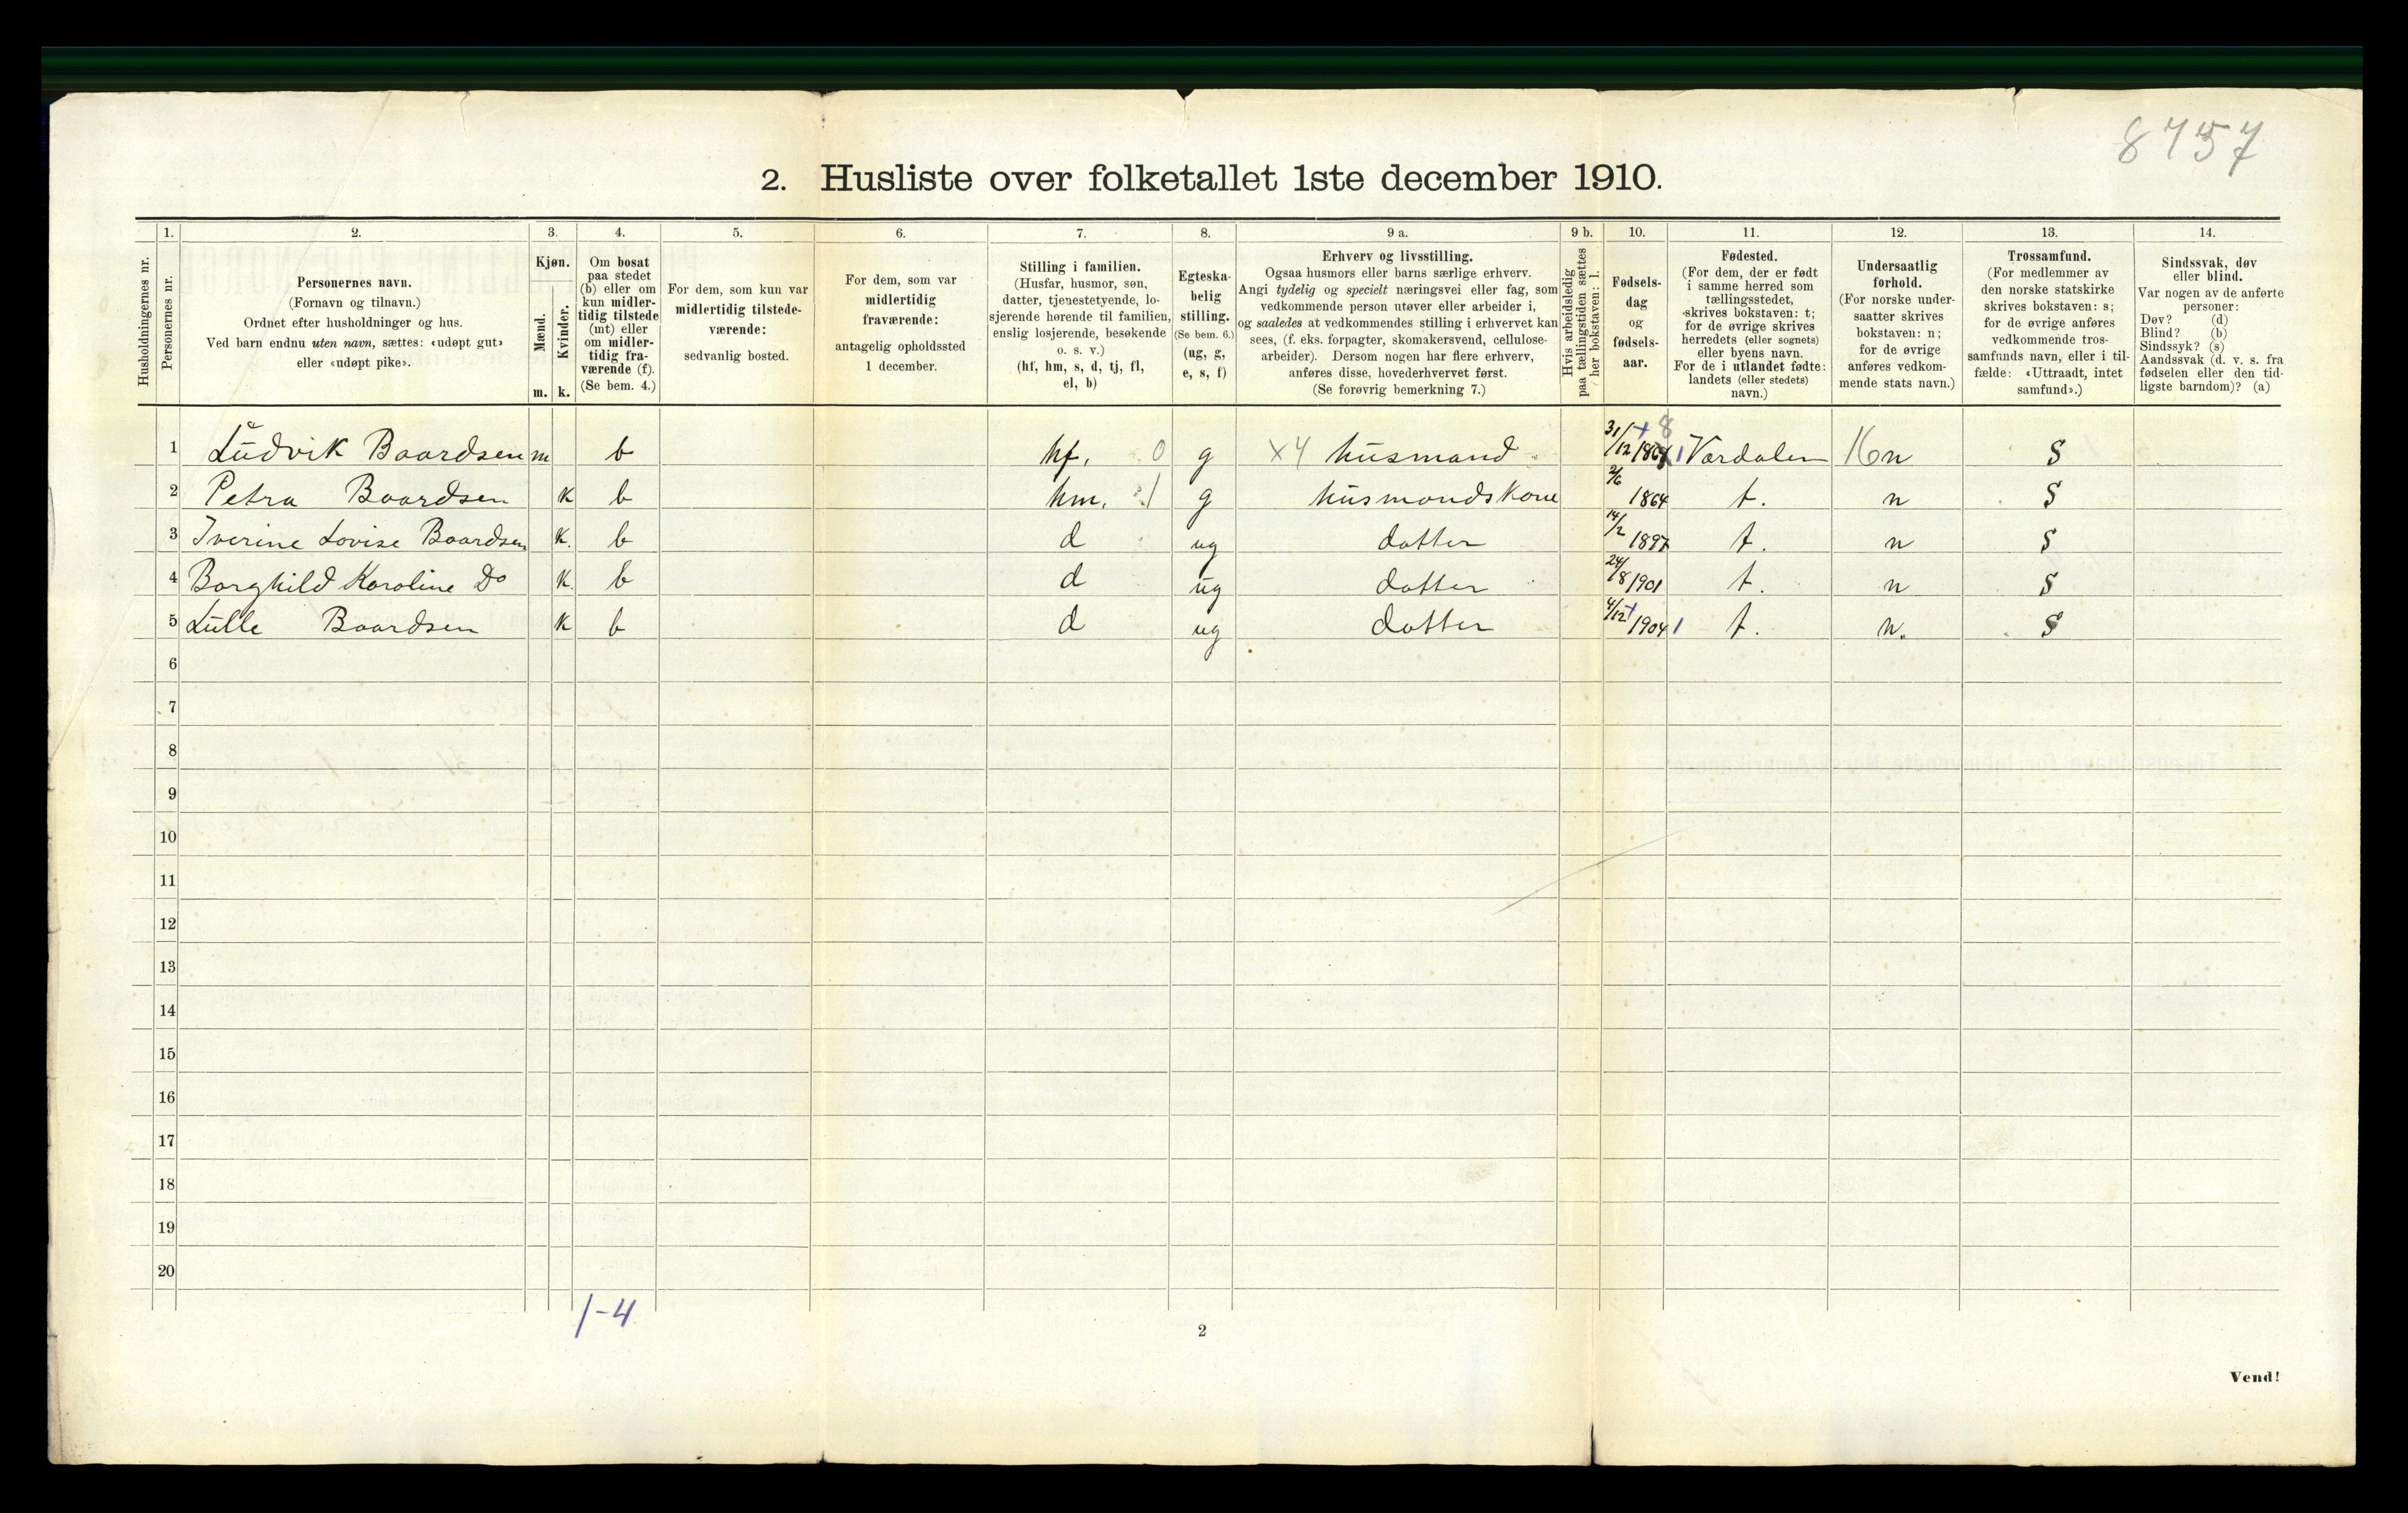 8757
2. Husliste over folketallet 1ste december 1910.
Husholdningernes nr.
1.
Personernes nr.
2.
Personernes navn.
(Fornavn og tilnavn.)
Ordnet efter husholdninger og hus.
Ved barn endnu uten navn, sættes: «udøpt gut»
eller «udøpt pike».
3.
Kjøn.
Mænd.
Kvinder.
m. k.
4.
Om bosat
paa stedet
(b) eller om
kun midler-
tidig tilstede
(mt) eller
om midler-
tidig fra-
værende (f).
(Se bem. 4.)
5.
For dem, som kun var
midlertidig tilstede-
værende:
sedvanlig bosted.
6.
For dem, som var
midlertidig
fraværende:
antagelig opholdssted
1 december.
7.
Stilling i familien.
(Husfar, husmor, søn,
datter, tjenestetyende, lo-
sjerende hørende til familien,
enslig losjerende, besøkende
o. s. v.)
(hf, hm, s, d, tj, fl,
el, b)
8.
Egteska-
belig
stilling.
(Se bem. 6.)
(ug, g,
e, s, f)
9 a.
Erhverv og livsstilling.
Ogsaa husmors eller barns særlige erhverv.
Angi tydelig og specielt næringsvei eller fag, som
vedkommende person utøver eller arbeider i,
og saaledes at vedkommendes stilling i erhvervet kan
sees, (f. eks. forpagter, skomakersvend, cellulose-
arbeider). Dersom nogen har flere erhverv,
anføres disse, hovederhvervet først.
(Se forøvrig bemerkning 7.)
9 b.
Hvis arbeidsledig
paa tællingstiden sættes
her bokstaven: l.
10.
Fødsels-
dag
og
fødsels-
aar.
11.
Fødested.
(For dem, der er født
i samme herred som
tællingsstedet,
skrives bokstaven: t;
for de øvrige skrives
herredets (eller sognets)
eller byens navn.
For de i utlandet fødte:
landets (eller stedets)
navn.)
12.
Undersaatlig
forhold.
(For norske under-
saatter skrives
bokstaven: n;
for de øvrige
anføres vedkom-
mende stats navn.)
13.
Trossamfund.
(For medlemmer av
den norske statskirke
skrives bokstaven: s;
for de øvrige anføres
vedkommende tros-
samfunds navn, eller i til-
fælde: «Uttraadt, intet
samfund».)
14.
Sindssvak, døv
eller blind.
Var nogen av de anførte
personer:
Døv? (d)
Blind? (b)
Sindssyk? (s)
Aandssvak (d. v. s. fra
fødselen eller den tid-
ligste barndom)? (a)
1 Ludvik Baardsen m b hf. 0 g X4 husmand 31/12 + 8 1 Værdalen 16 n S
2 Petra Baardsen K b hm. 1 g husmandskone 2/6 1864 t. n S
3 Iverine Lovise Baardsen K. b d ug datter 14/2 1897 t. n S
4 Borghild Karoline Do K. b d ug datter 24/8 1901 t. n S
5 Lulle Baardsen K b d ug datter 4/12 + 1904 1 t. n. S
6
7
8
9
10
11
12
13
14
15
16
17
18
19
20
1-4
2
Vend!